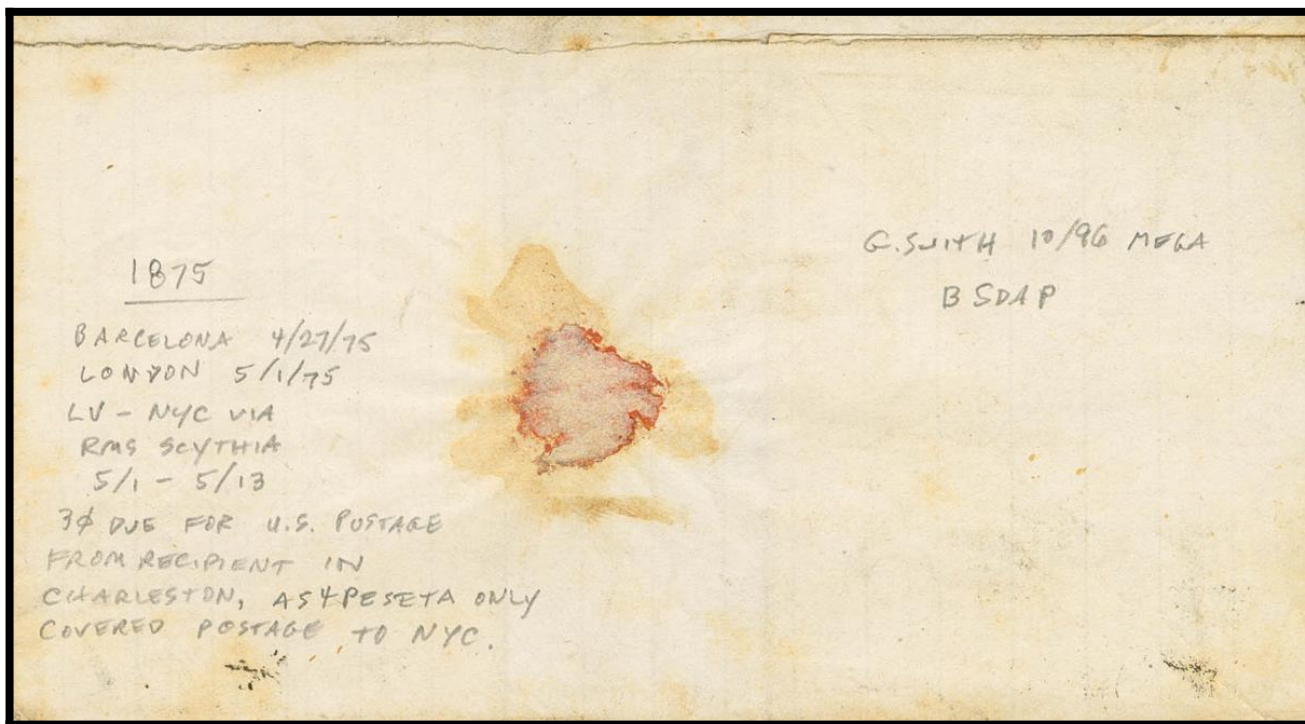 1875
BARCELONA 4/27/75
LONDON 5/1/75
LV - NYC VIA
RMS SCYTHIA
5/1 - 5/13
3¢ DUE FOR U.S. POSTAGE
FROM RECIPIENT IN
CHARLESTON, AS 4 PESETA ONLY
COVERED POSTAGE TO NYC.
G. SMITH 10/96 MEGA
B SDAP